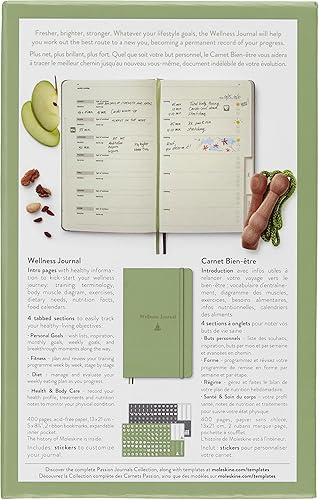 Fresher, brighter, stronger. Whatever your lifestyle goals, the Wellness Journal will help
you work out the best route to a new you, becoming a permanent record of your progress.
Plus net, plus brillant, plus fort. Quel que soit votre but personnel, le Carnet Bien-être vous aidera
à tracer le meilleur chemin jusqu'au nouveau vous-même, document indélébile de votre évolution.
Wellness Journal
Intro pages with healthy informa-
tion to kick-start your wellness
journey: training terminology,
body muscle diagram, exercises,
dietary needs, nutrition facts,
food calendars
4 tabbed sections to easily track
your healthy-living objectives:
· Personal Goals - wish lists, inspiration,
monthly goals, weekly goals, and
breakthrough moments along the way.
· Fitness - plan and review your training
programme week by week, stage by stage
· Diet - manage and evaluate your
weekly eating plan as you progress.
· Health & Body Care - record your
health profile, treatments and nutrition
notes to monitor your physical condition
400 pages, acid-free paper, 13×21 cm
5 x 8¼", 2 ribbon bookmarks, expandable
inner pocket.
The history of Moleskine is inside.
Includes: stickers to customize
your journal.
Wellness Journal
Carnet Bien-être
Introduction avec infos utiles à
relancer votre voyage vers le
bien-être : vocabulaire d'entraîne-
ment, diagramme des muscles,
exercices, besoins alimentaires,
infos nutritionnelles, calendriers
de repas
4 sections à onglets pour noter vos
buts de vie saine
· Buts personnels - liste des souhaits,
inspiration, buts par mois et par semaine
et avancées en chemin.
· Forme - programmez et révisez votre
programme de remise en forme par
semaine et par étape.
· Régime - gérez et faites le bilan de
votre plan nutritionnel hebdomadaire.
· Santé & Soin du corps - votre profil
santé, notes de nutrition et traitements
pour suivre votre état physique
400 pages, papier sans chlore,
13x21 cm, 2 rubans marque-page,
pochette à soufflet.
L'histoire de Moleskine est à l'intérieur.
Inclut : stickers pour personnaliser
votre journal.
Discover the complete Passion Journals Collection, along with templates at moleskine.com/templates
Découvrez la collection complète des Carnets Passion, ainsi que des modèles sur moleskine.com/templates